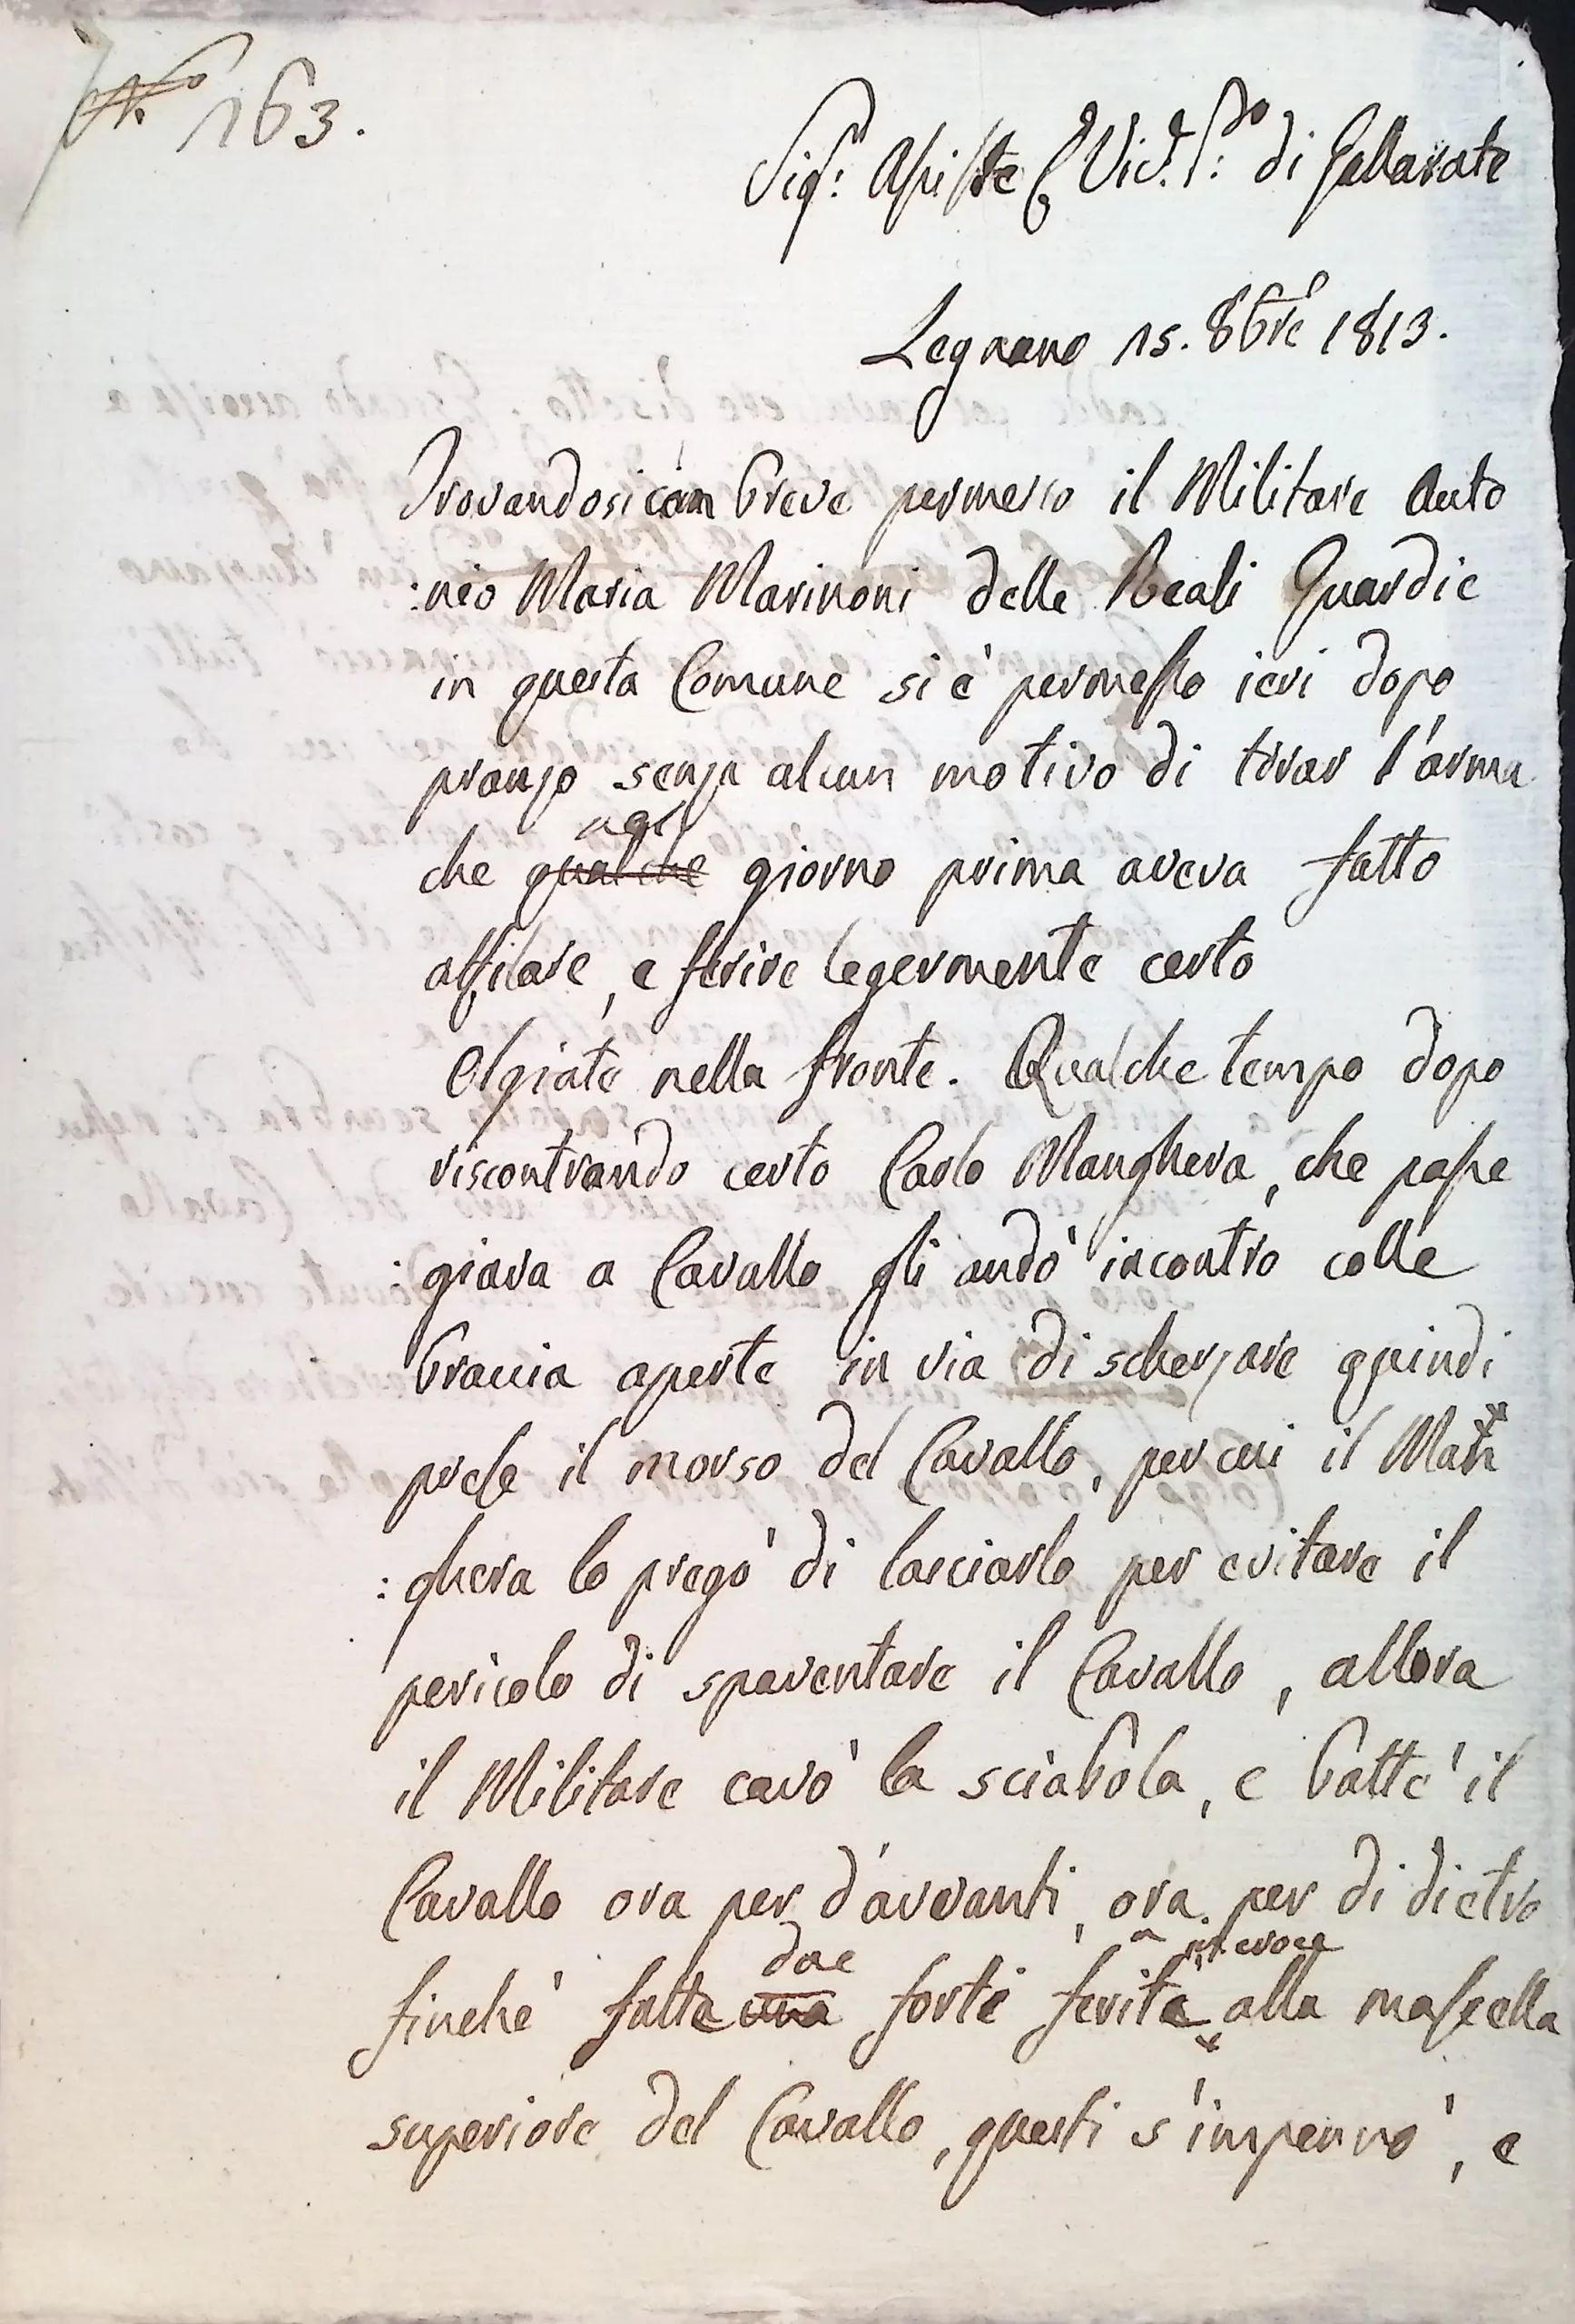 N.o 163.
Sig.r Assiste V.e Pref.do di Gallarate
Legnano 15. 8bre 1813.
Trovandosi con breve permesso il Militare Anto
:nio Maria Marinoni delle Reali Guardie
in questa Comune si è permesso ieri dopo
pranzo senza alcun motivo di tirar l'arma
che qualche giorno prima aveva fatto
affilare, e ferire legermente certo
Olgiate nella fronte. Qualche tempo dopo
riscontrando certo Carlo Manghera, che passe
:giava a Cavallo gli andò incontro colle
braccia aperte in via di scherzare quindi
prese il morso del Cavallo, per cui il Man
:ghera lo pregò di lasciarlo per evitare il
pericolo di spaventare il Cavallo, allora
il Militare cavò la sciabola, e battè il
Cavallo ora per d'avvanti, ora per di dietro
due
in croce
finchè fatte una forte ferite alla mascella
superiore del Cavallo, questi s'impennò, e